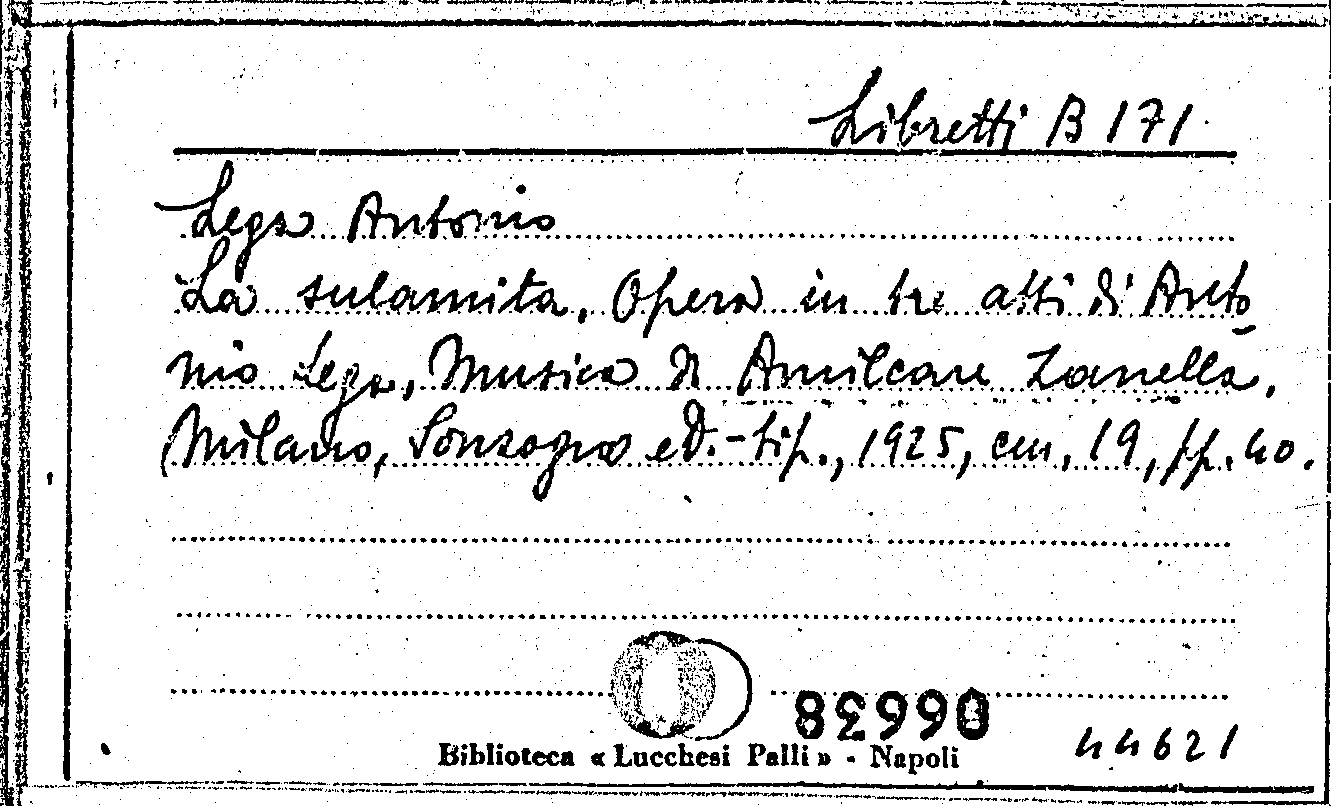 Libretti B 171
Lega Antonio
La sulamita, Opera in tre atti di Anto
nio Lega, Musica di Amilcare Zanella,
Milano, Sonzogno ed.-tip., 1925, cm. 19, pp. 40.
06638
Biblioteca « Lucchesi Palli » - Napoli
44621